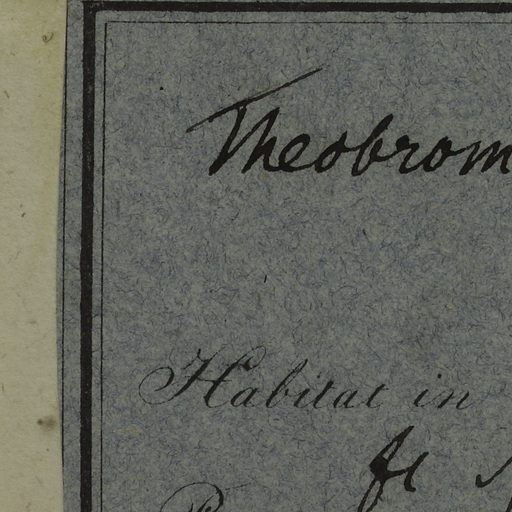 Theobrom
Habitat in